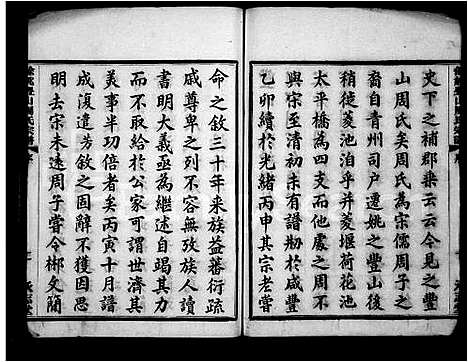 史下之補郡乗云云今見之豐
山周氏矣周氏為宋儒周子之
裔自青州司户遷姚之豐山後
稍徙菱池泊乎并菱堰荷花池
太平橋為四支而他處之周不
與宗至清初未有譜牣於咸豐
乙卯續於光緒丙申其宗老嘗
命之敘三十年来族益蕃衍疏
戚尊卑之列不容無攷族人讀
書明大義亟為繼述自竭其力
而不取給於公家可謂世濟其
美事半功倍者矣丙寅十月譜
成復違芳敘之固辭不獲因思
明去宋未遠周子嘗令郴文簡